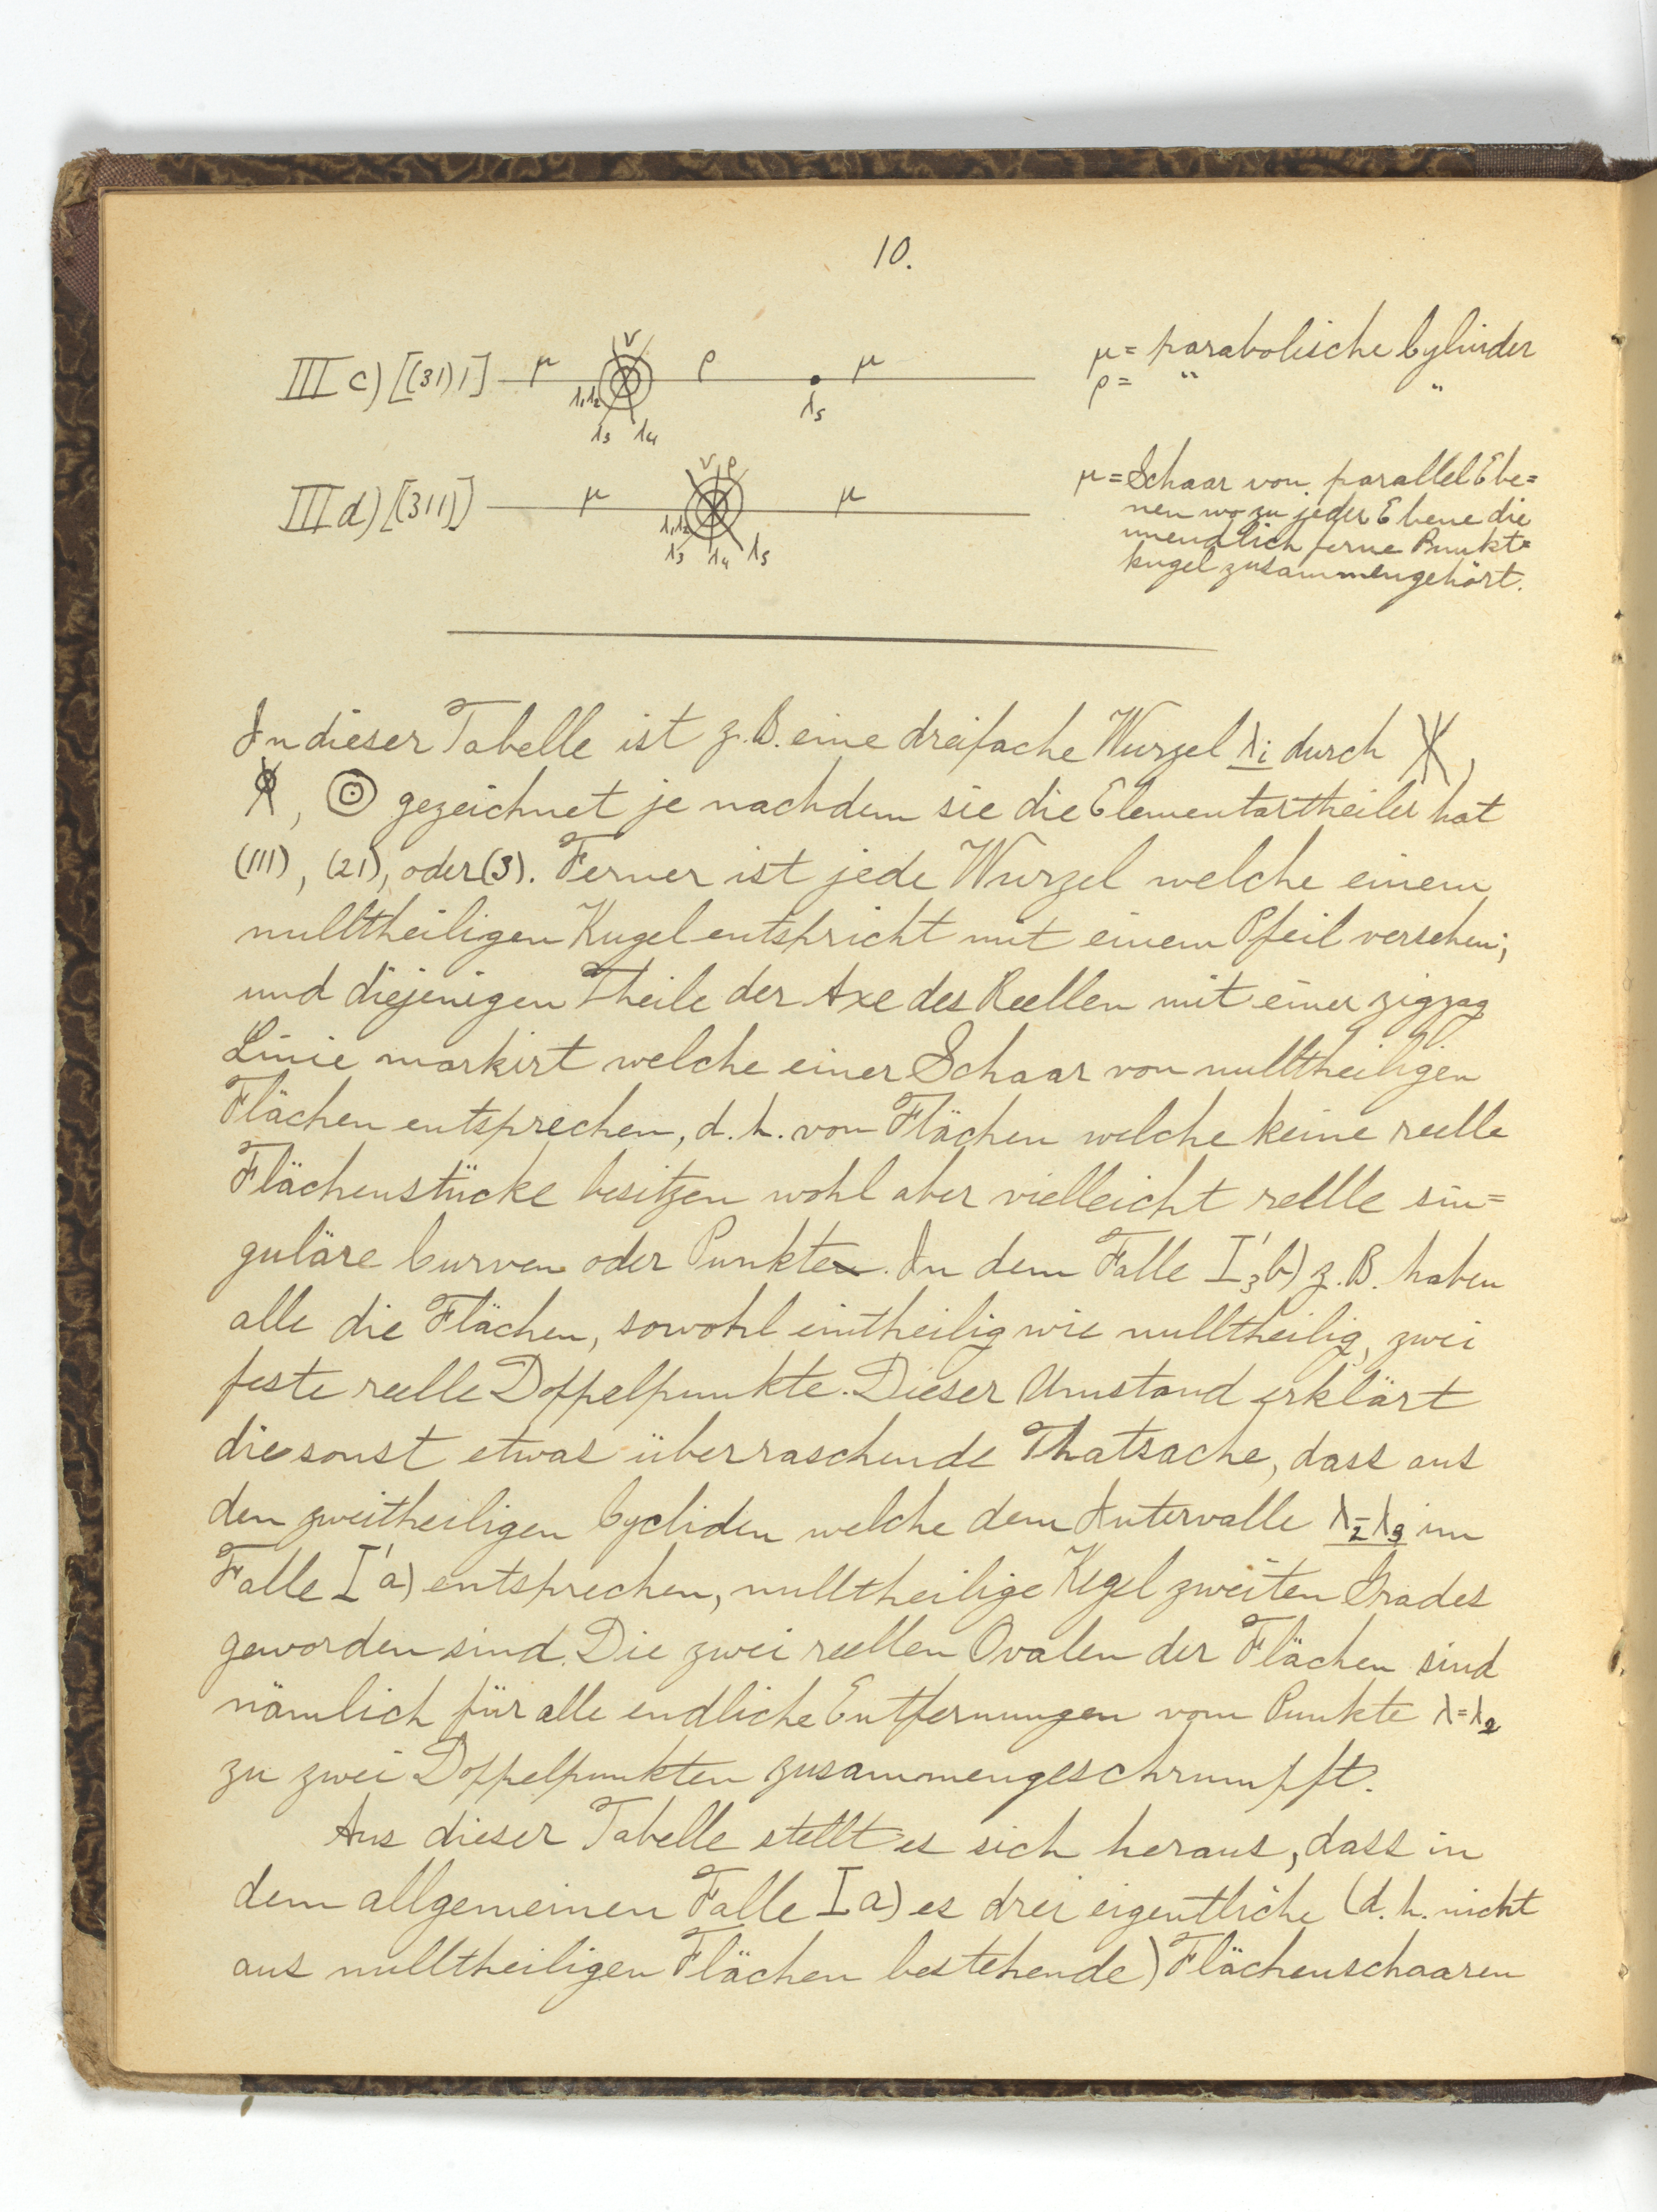 10.
III c) [(31)1] μ ν ρ μ μ = parabolische Cylinder
λ₁λ₂ λ₃ λ₄ λ₅ ρ = " "
III d) [(311)] μ ν ρ μ μ = Schaar von parallel Ebe=
λ₁λ₂ λ₃ λ₄ λ₅ nen wo zu jeder Ebene die
unendlich ferne Punkt=
kugel zusammengehört.
In dieser Tabelle ist z.B. eine dreifache Wurzel λi durch ,
, gezeichnet je nachdem sie die Elementartheiler hat
(111), (21), oder (3). Ferner ist jede Wurzel welche einem
nulltheiligen Kugel entspricht mit einem Pfeil versehen;
und diejenigen Theile der Axe des Reellen mit einer zigzag
Linie markirt welche einer Schaar von nulltheiligen
Flächen entsprechen, d.h. von Flächen welche keine reelle
Flächenstücke besitzen wohl aber vielleicht reelle sin=
guläre Curven oder Punkte. In dem Falle I'₃b) z.B. haben
alle die Flächen, sowohl eintheilig wie nulltheilig, zwei
feste reelle Doppelpunkte. Dieser Umstand erklärt
die sonst etwas überraschende Thatsache, dass aus
den zweitheiligen Cycliden welche dem Intervalle λ₂-λ₃ im
Falle I'a) entsprechen, nulltheilige Kegel zweiten Grades
geworden sind. Die zwei reellen Ovalen der Flächen sind
nämlich für alle endliche Entfernungen vom Punkte λ=λ₂
zu zwei Doppelpunkten zusammengeschrumpft.
Aus dieser Tabelle stellt es sich heraus, dass in
dem allgemeinen Falle I a) es drei eigentliche (d.h. nicht
aus nulltheiligen Flächen bestehende) Flächenschaaren